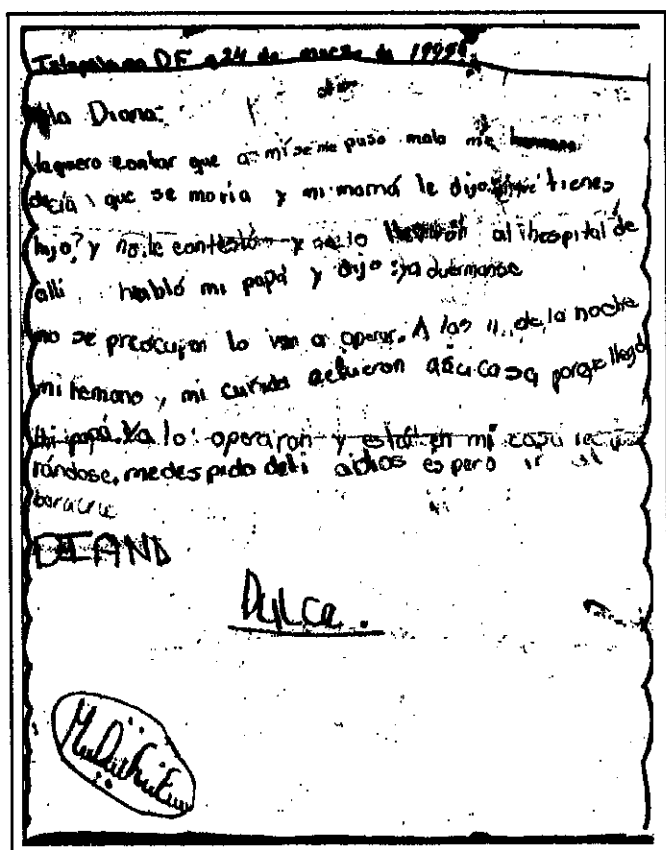 DF a 24 de marzo de 1995
Diana:
te quiero contar que a mi se me puso malo mi hermano
decía que se moria y mi mamá le dijo ¿que tienes
hijo? y no le contestó y se lo llevaron al hospital de
alli habló mi papá y dijo: ya duermanse
no se preocupen lo van a operar. A las 11 de la noche
mi hermano y mi cuñada a su casa porque llegó
mi papá. Ya lo operaron y está en mi casa
rándose, me despido de ti adios espero ir
DIANA
Dulce.